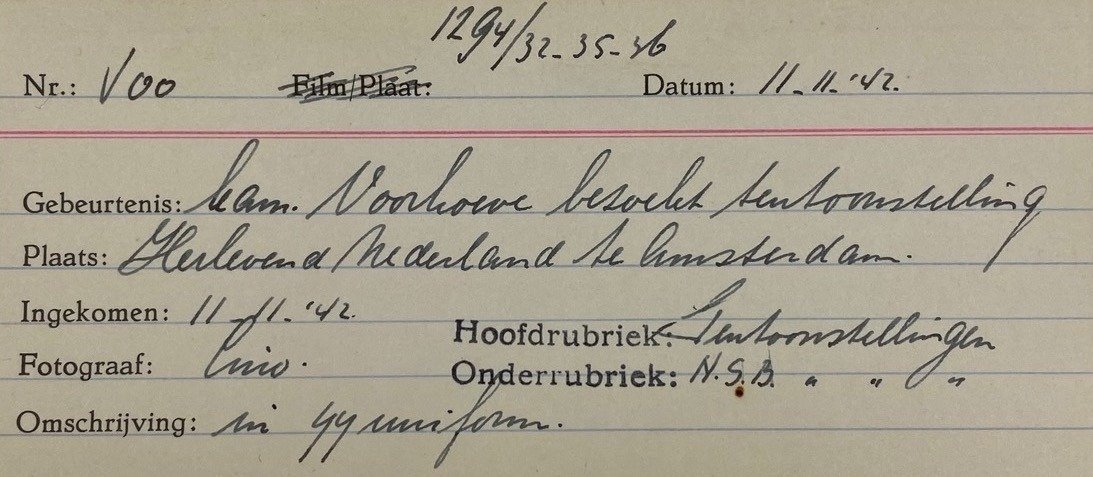 1294/32-35-36
Nr.: Voo Film/Plaat: Datum: 11-11-'42.
Gebeurtenis: kam. Voorhoeve bezoekt tentoonstelling
Plaats: Herlevend Nederland te Amsterdam.
Ingekomen: 11-11-'42.
Hoofdrubriek: Tentoonstellingen
Fotograaf:
Onderrubriek: N.S.B. " " "
Omschrijving: in uniform.